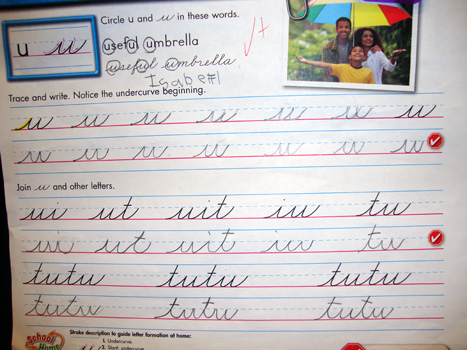 Circle u and u in these words.
u u
useful umbrella
useful umbrella
Isabell
Trace and write. Notice the undercurve beginning.
u u u u u u u
u u u u u u u
Join u and other letters.
ui ut uit iu tu
ui ut uit iu tu
tutu tutu tutu
tutu tutu tutu
Stroke description to guide letter formation at home:
1. Undercurve.